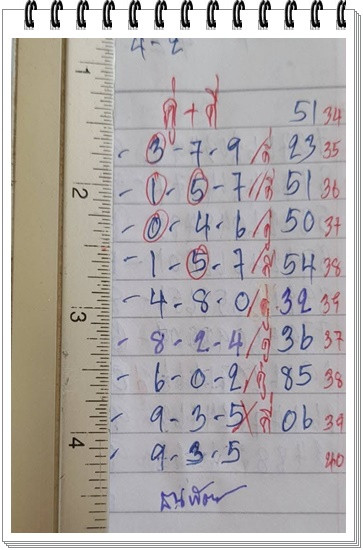 4-2
คู่+คี่ 51 34
- 3-7-9/คี่ 23 35
- 1-5-7/คี่ 51 36
- 0-4-6/คู่ 50 37
- 1-5-7/คี่ 54 38
- 4-8-0/คู่ 32 39
- 8-2-4/คู่ 36 37
- 6-0-2/คู่ 85 38
- 9-3-5×คี่ 06 39
- 9-3-5 40
1
2
3
4